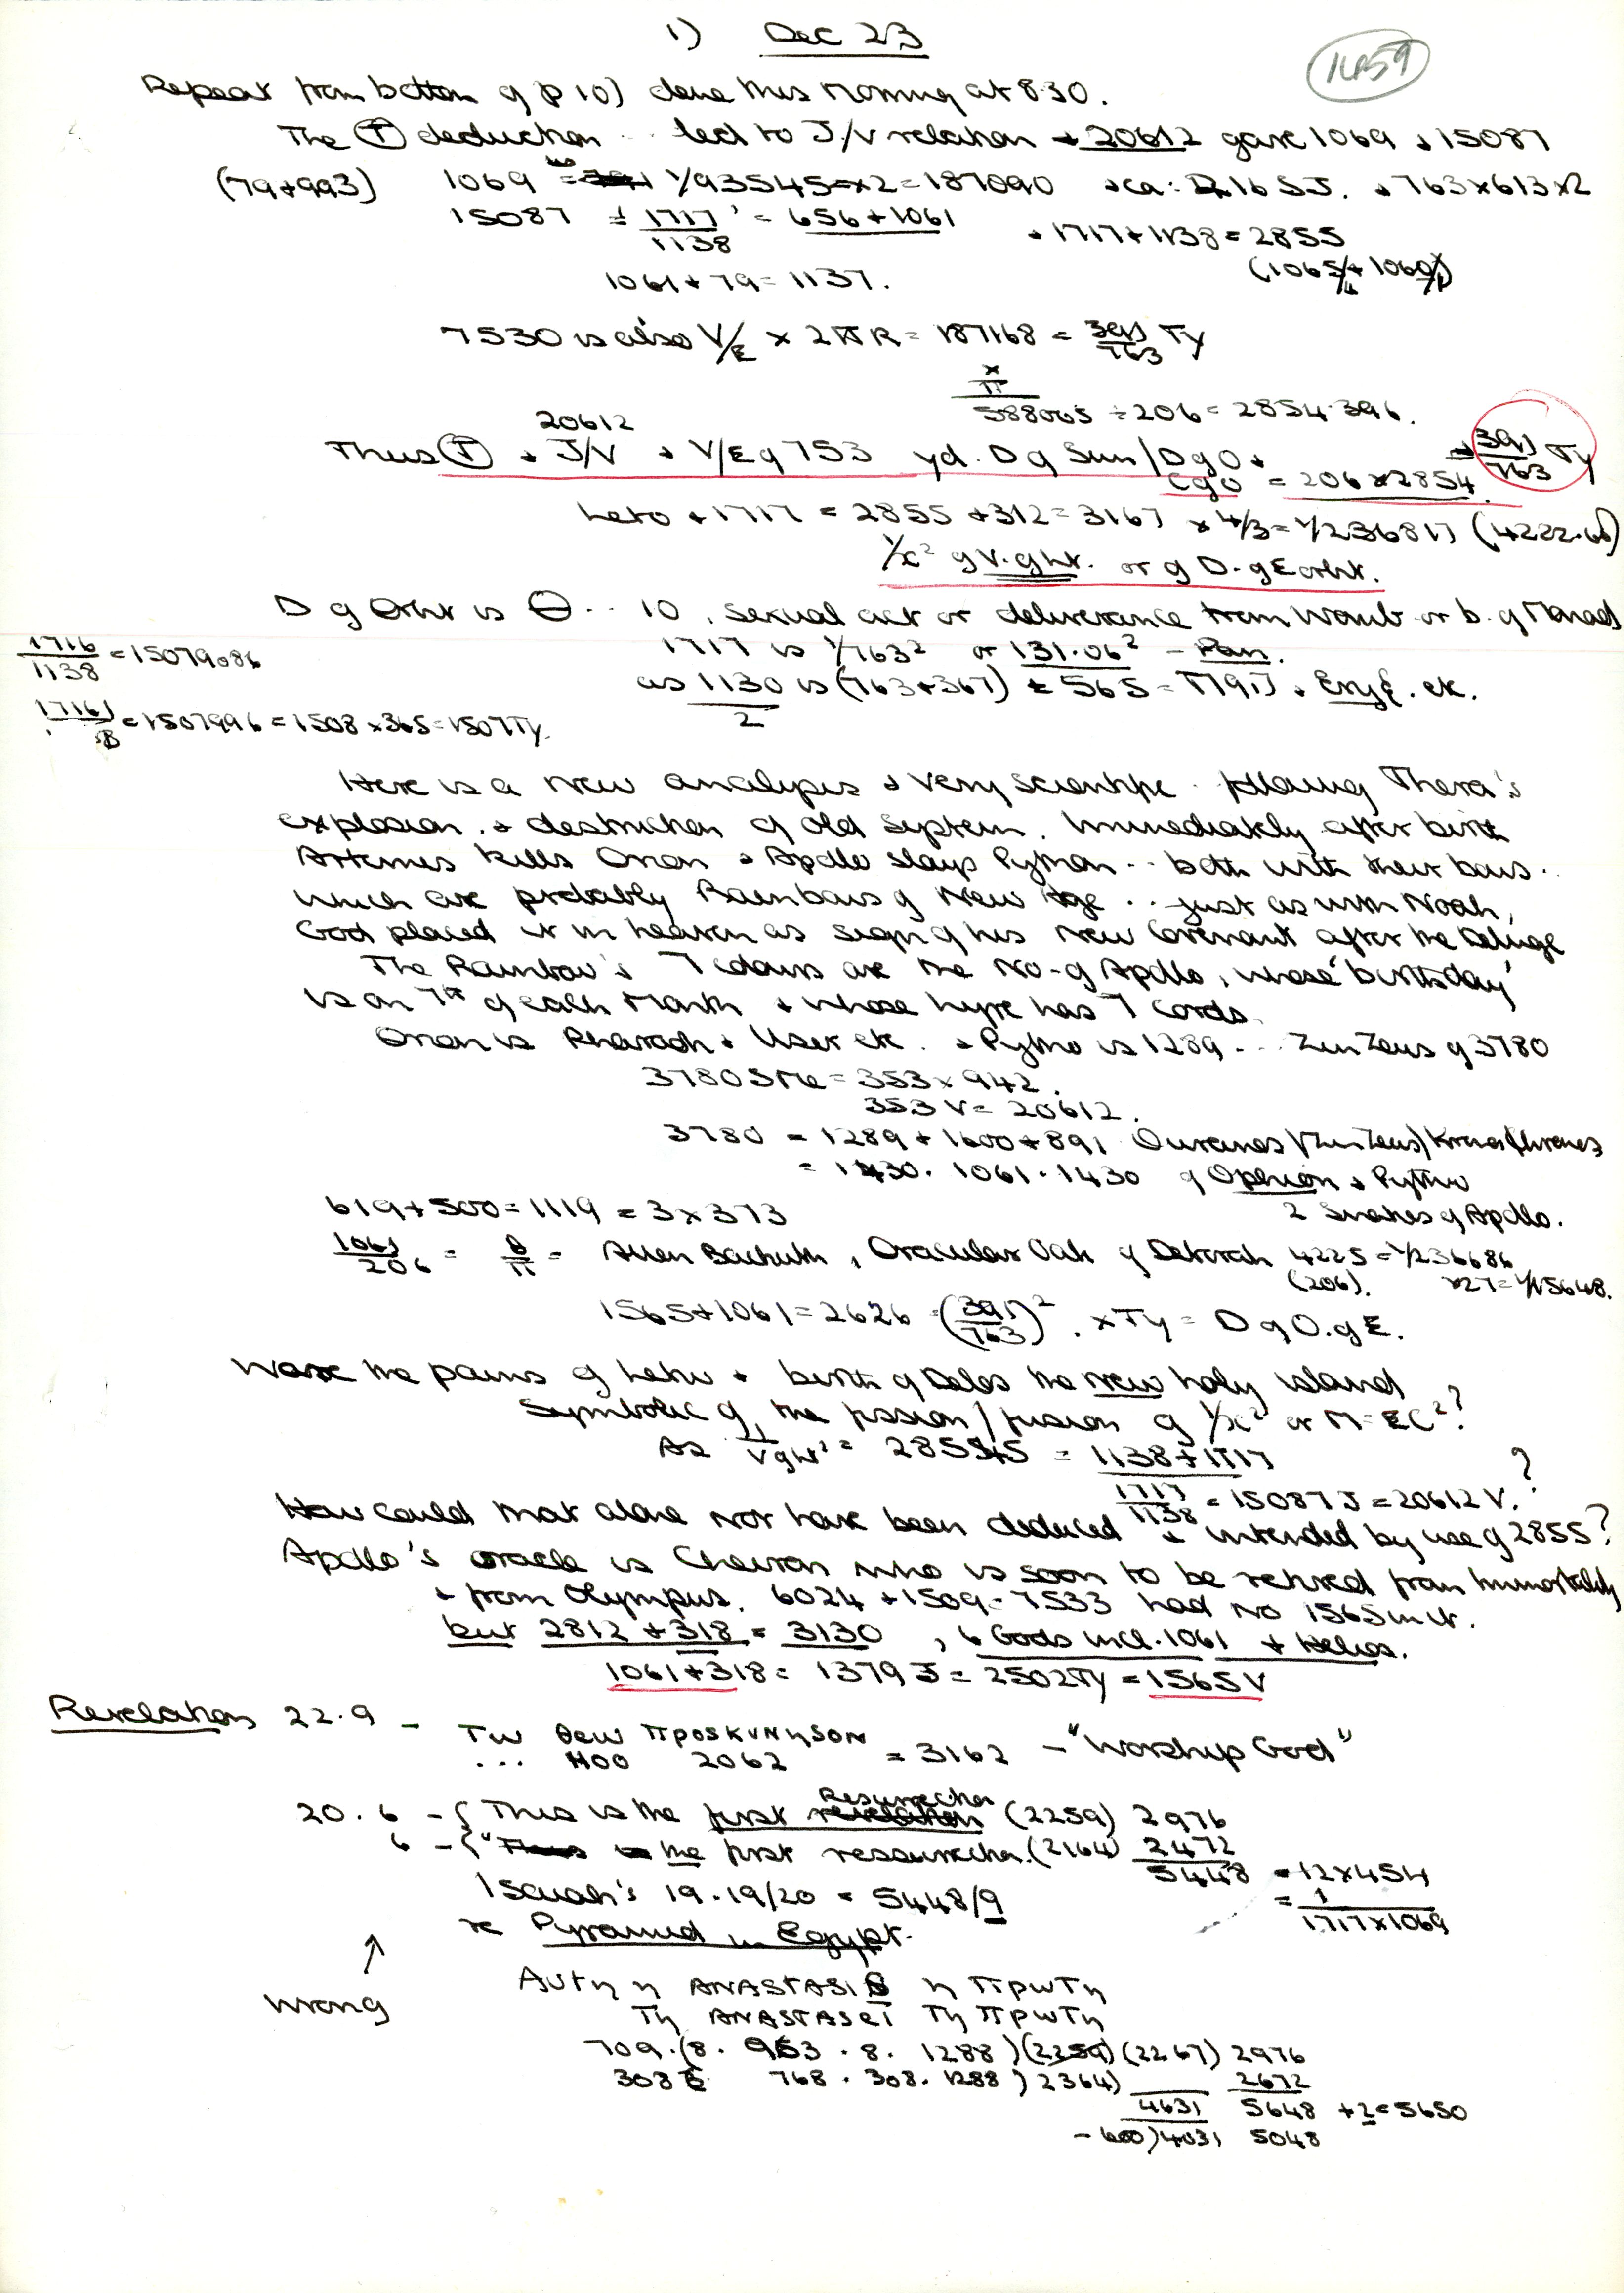 1) Dec 23
1659
Repeat from bottom of p 10) done this morning at 8.30.
The Ⓣ deduction .. led to J/V relation + 20612 gave 1069 + 15087
(79+993) 1069 = 1/93545 = x2 = 187090 + ca: 16 SJ. + 763x613x2
15087 = 1717/1138 = 656+1061 + 1717+1138 = 2855
(1065/4 + 1060/1)
1061+79=1137.
7530 is also V/E x 2πR = 187168 = 391/763 Ty
x/π
588065 ÷206 = 2854.396.
20612
Thus Ⓣ + J/V + V/E of 753 yd. D of Sun/D of O + → 391/763 Ty
C of O = 206x2854.
Leto + 1717 = 2855 +312=3167 x 4/3 = 1/236817 (4222.66)
1/c² of V. of Lt. or of D. of E orbit.
D of Orbit is Θ .. 10, sexual act or deliverance from Womb or b. of Monad
1716/1138 = 15079086
1717 is 1/763² or 131.06² - Pan.
as 1130/2 is (763+367) ± 565 = etc.
= 1507996 = 1508 x365=1507Ty
Here is a new analysis + very scientific following Thera's
explosion. + destruction of old system. Immediately after birth
Artemis kills Orion + Apollo slays Python .. both with their bows..
which are probably Rainbows of New Age .. just as with Noah,
God placed it in heaven as sign of his New Covenant after the Deluge
The Rainbow's 7 colours are the No- of Apollo, whose 'birthday'
is on 7th of each Month + whose lyre has 7 cords.
Orion is Pharaoh + User etc. + Pytho is 1289 ... Zun Zeus of 3780
3780 SMe = 353 x 942.
353 V = 20612.
3780 = 1289 + 1600 + 891 Ouranos/Zun Zeus/Kronos
= 1430. 1061. 1430 of Ophion + Pytho
619+500=1119 = 3x373 2 Snakes of Apollo.
1061/206 = - Allen Bachuth, Oracular Oak of Deborah 4225 = 1/236686
(206). x27=1/15648.
1565+1061=2626 = (391/763)². x Ty = D of O. of E.
Were the pains of Leto + birth of Delos the New holy island
symbolic of the fission/fusion of 1/c² or M=EC²?
As 1/V of Lt² = 285545 = 1138+1717 ?
1717/1138 = 15087 J = 20612 V.
How could that alone not have been deduced + intended by use of 2855?
Apollo's oracle is Cheiron who is soon to be retired from Immortality
+ from Olympus. 6024 +1509 = 7533 had no 1565 in it.
but 2812 + 318 = 3130, 6 Gods incl. 1061 + Helios.
1061+318 = 1379 J = 2502Ty = 1565 V
Revelation 22.9 - Tω θεω ΠροSKυNηSON
... 1100 2062 = 3162 - "Worship God"
20.6 - { This is the first Resurrection (2259) 2976
6 - { "the first ressurection. (2164) 2472
5448 = 12x454
Isaiah's 19.19/20 = 5448/9 = 1/1717x1069
re Pyramid in Egypt.
↑
wrong
Αυτη η ANASTASIS η ΠρωTη
Tη ANASTASEI Tη ΠρωTη
709. (8. 963. 8. 1288) (2259) (2267) 2976
308 768. 308. 1288) 2364) 2672
4631 5648 +2=5650
-600) 4031 5048